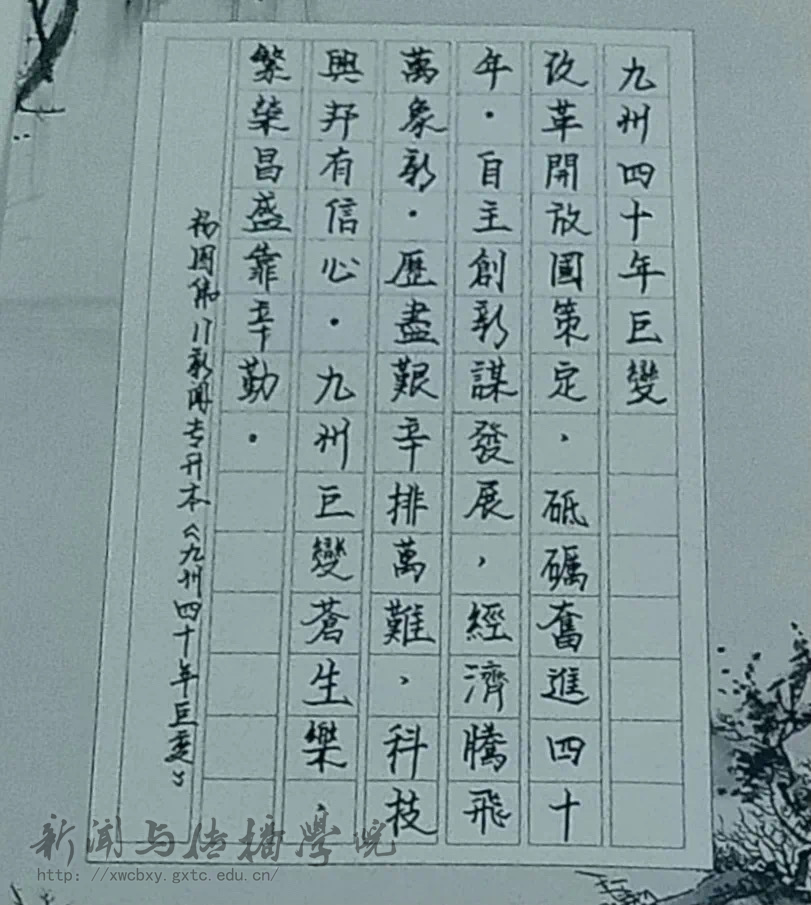 九州四十年巨變
改革開放國策定，砥礪奮進四十
年。自主創新謀發展，經濟騰飛
萬象新。歷盡艱辛排萬難，科技
興邦有信心。九州巨變蒼生樂，
繁榮昌盛靠辛勤。
新聞专升本《九州四十年巨变》
新闻与传播学院
http://xwcbxy.gxtc.edu.cn/